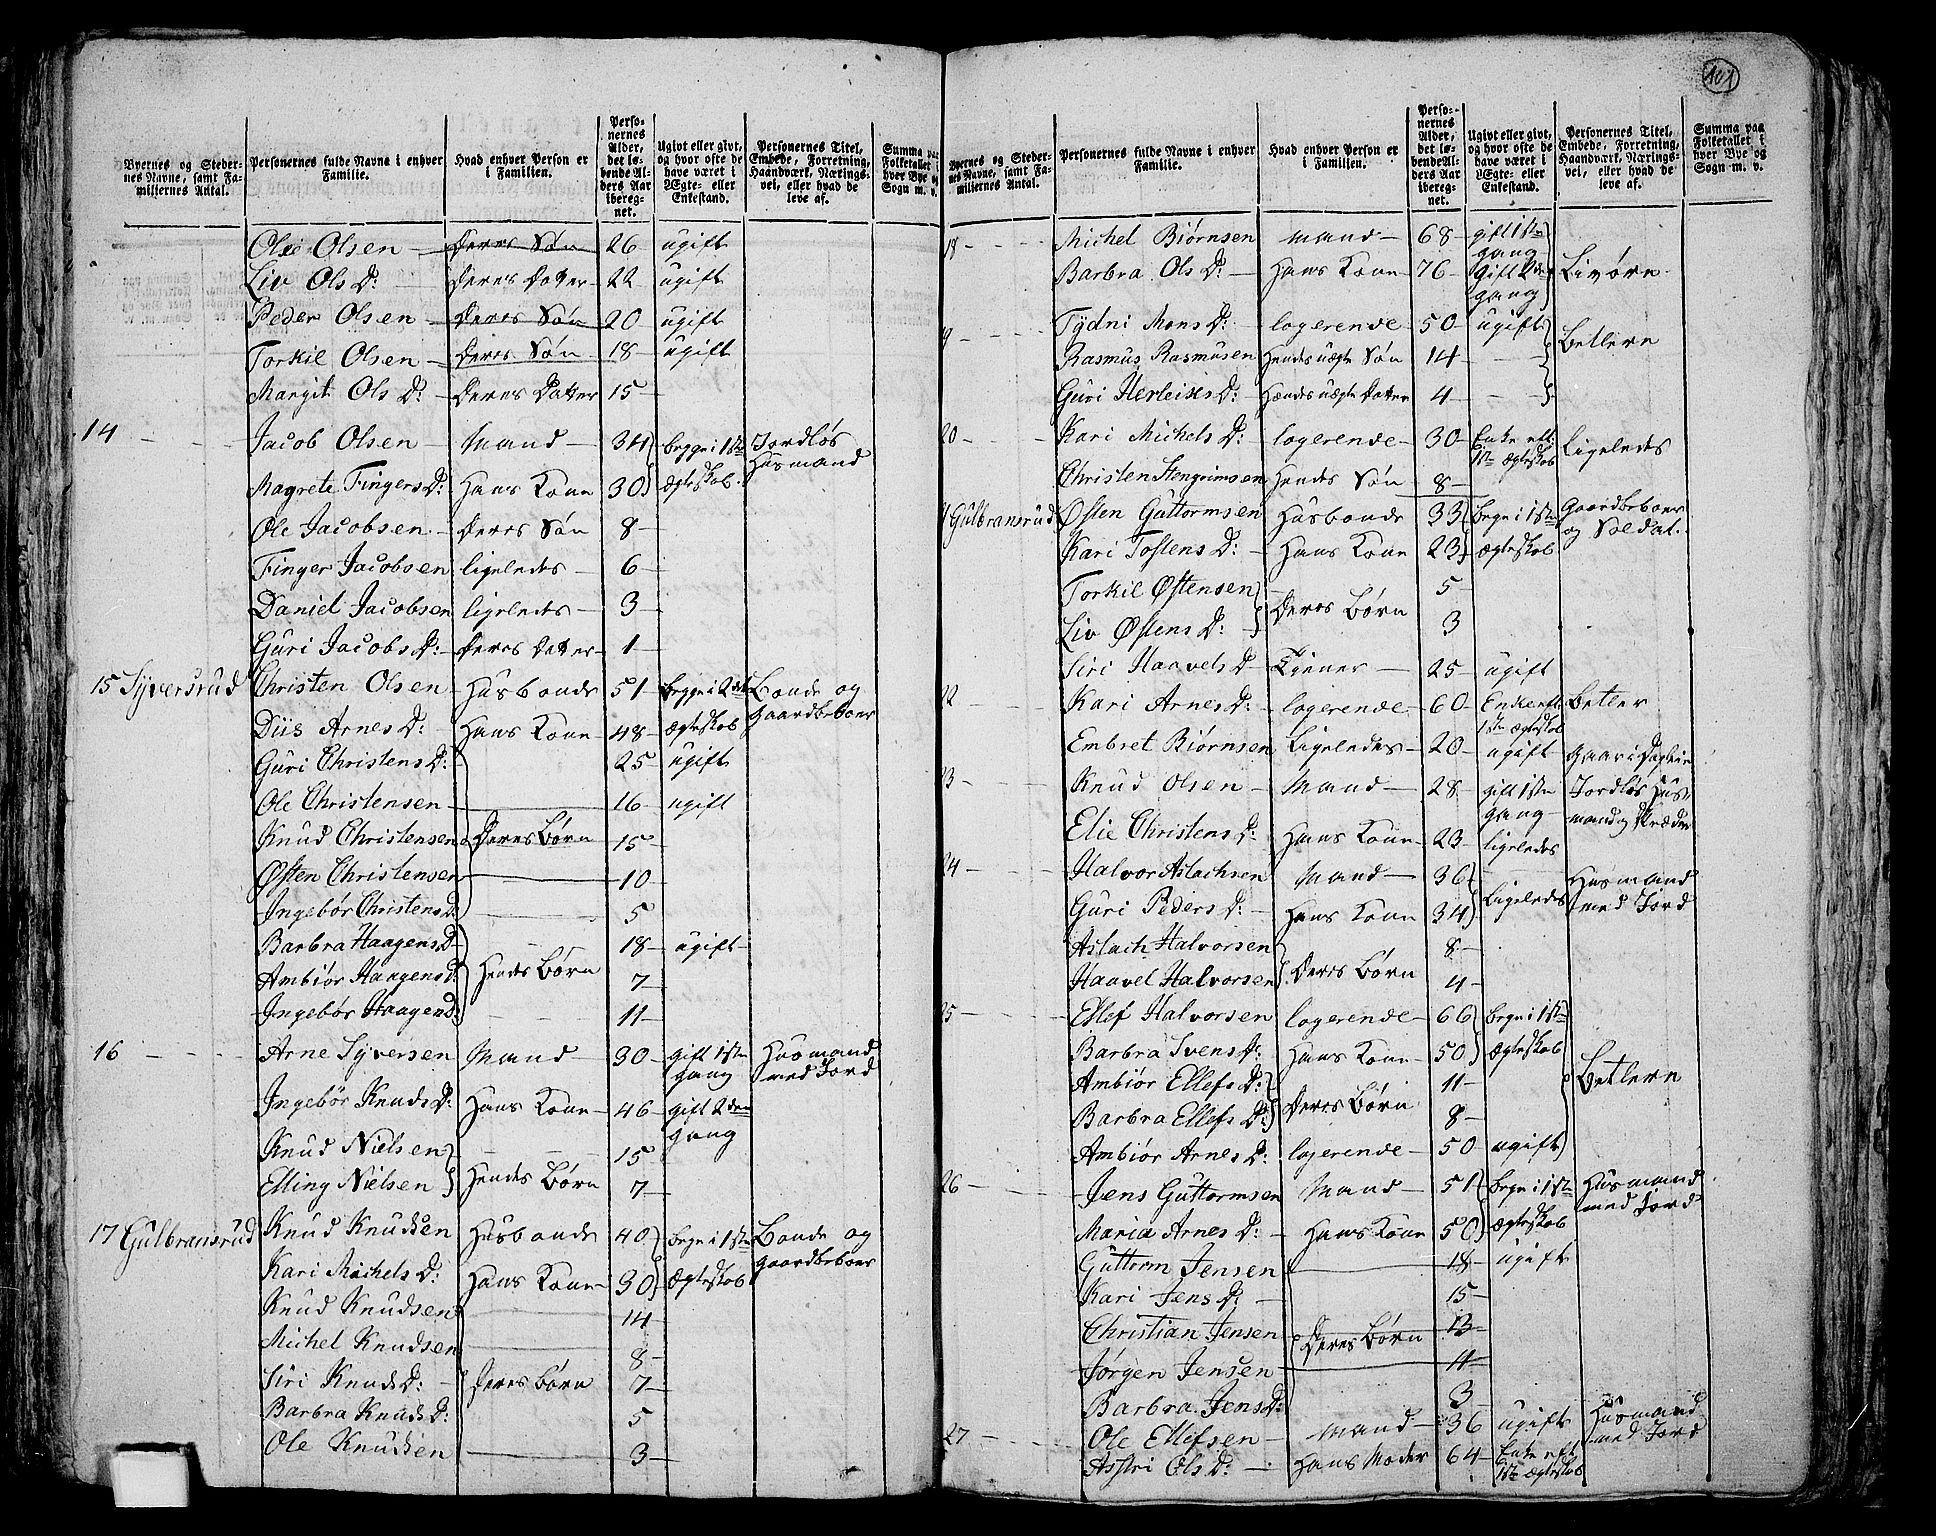 101
Byernes og Steder-
nes Navne, samt Fa-
miliernes Antal.
Personernes fulde Navne i enhver
Familie.
Hvad enhver Person er
i Familien.
Perso-
nernes
Alder,
det lø-
bende Al-
ders Aar
ibereg-
net.
Ugivt eller givt,
og hvor ofte de
have været i
Ægte- eller
Enkestand.
Personernes Titel,
Embede, Forretning,
Haandværk, Nærings-
vei, eller hvad de
leve af.
Summa paa
Folketallet i
hver Bye og
Sogn m. v.
Olse Olsen — Deres Søn 26 ugift
Liv Ols D: — Deres Dater 22 ugift
Peder Olsen — Deres Søn 20 ugift
Torkil Olsen — Deres Søn 18 ugift
Margit Ols D: Deres Dater 15
14 Jacob Olsen — Mand — 34 begge i 1ste Jordløs
Husmand
Magrete Fingers D: Hans Kone 30 ægteskab.
Ole Jacobsen — Deres Søn 8
Finger Jacobsen ligeledes — 6
Daniel Jacobsen ligeledes — 3
Guri Jacobs D: Deres Dater 1
15 Syversrud Christen Olsen Husbonde 51 begge i 2det Bonde og
Gaardbeboer
Diis Arnes D: Hans Kone 48 Ægteskab
Guri Christens D: 25 ugift
Ole Christensen 16 ugift
Knud Christensen Deres Børn 15
Østen Christensen 10
Ingebør Christens D: 5
Barbra Haagens D 18 ugift
Ambiør Haagens D: Hendes Børn 7
Ingebør Haagens D: 11
16 Arne Syversen Mand 30 gift 1ste Husmand
gang med Jord
Ingebør Knuds D: Hans Kone 46 gift 2den
gang
Knud Nielsen 15
Elling Nielsen Hendes Børn 7
17 Gulbransrud Knud Knudsen Husbonde 40 begge i 1ste Bonde og
Gaardbeboer
Kari Michels D: Hans Kone 30 Ægteskab
Knud Knudsen 14
Michel Knudsen 8
Siri Knuds D: — Deres Børn 7
Barbra Knuds D: 5
Ole Knudsen 3
Byernes og Steder-
nes Navne, samt Fa-
miliernes Antal.
Personernes fulde Navne i enhver
Familie.
Hvad enhver Person er
i Familien.
Perso-
nernes
Alder,
det lø-
bende Al-
ders Aar
ibereg-
net.
Ugivt eller givt,
og hvor ofte de
have været i
Ægte- eller
Enkestand.
Personernes Titel,
Embede, Forretning,
Haandværk, Nærings-
vei, eller hvad de
leve af.
Summa paa
Folketallet i
hver Bye og
Sogn m. v.
18 Michel Biørnsen Mand — 68 gift 1ste
gang
Barbra Ols D: — Hans Kone 76 gift 2den Livørn
gang
9 Tydni Mons D: logerende 50 ugift Betlern
Rasmus Rasmusen Hendes uægte Søn 14
Guri Herleiks D: Hændes uægte Dater 4
20 Kari Michels D: logerende 30 Enke eft: Ligeledes
1ste Ægteskab
Christen Stengrimsen Hendes Søn 8
Gulbransrud Østen Guttormsen Husbonde 33 begge i 1ste Gaardbeboer
og Soldat.
Kari Tostens D: Hans Kone 23 Ægteskab
Torkil Østensen 5
Deres Børn
Liv Østens D: 3
Siri Haavels D Tiener 25 ugift
22 Kari Arnes D: logerende 60 Enke eft Betler
1ste ægteskab
Embret Biørnsen Ligeledes 20 ugift Gaar i
23 Knud Olsen — Mand — 28 gift 1ste Jordløs Hus-
gang mand og Skræder
Elie Christens D: Hans Kone 23 ligeledes
24 Halvor Aslachsen Mand — 36 Husmand
Ligeledes med Jord
Guri Peders D: Hans Kone 34
Aslach Halvorsen 8
Haavel Halvorsen Deres Børn 4
25 Ellef Halvorsen logerende 66 begge i 1ste
Barbra Svens D: Hans Kone 50 Ægteskab
Ambiør Ellefs D: 11 Betlern
Deres Børn
Barbra Ellefs D: 8
Ambiør Arnes D: logerende 50 ugift
26 Jens Guttormsen Mand — 51 begge i 1ste Husmand
med Jord
Maria Arnes D: Hans Kone 50 Ægteskab
Guttorm Jensen 18 ugift
Kari Jens D: 15
Christian Jensen 13
Deres Børn
Jørgen Jensen 11
Barbra Jens D: 3
27 Ole Ellefsen — Mand — 36 ugift Husmand
med Jord
Asstri Ols D: — Hans Moder 64 Enke eft
1ste Ægteskab